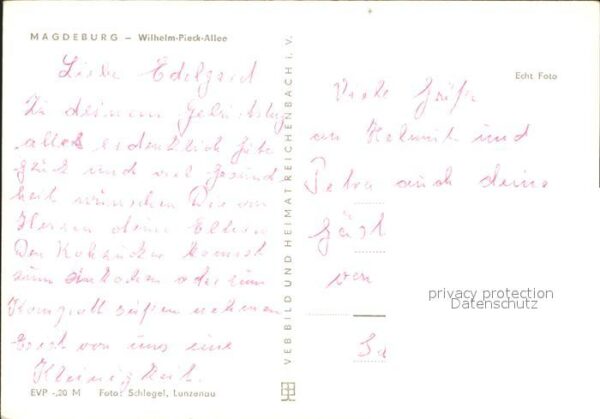 MAGDEBURG – Wilhelm-Pieck-Allee
Liebe Edelgard
Zu deinem Geburtstag
alles erdenklich Gute
Glück und viel Gesund
heit wünschen Dir von
Herzen deine Eltern
Den Kohzucker kannst
zum einkochen oder zum
Kompott süßen nehmen
Erst von uns eine
Kleinigkeit.
EVP -,20 M Foto: Schlegel, Lunzenau
VEB BILD UND HEIMAT REICHENBACH i. V.
Echt Foto
Viele Grüße
an Helmut und
Petra auch deine
Gäst
von
privacy protection
Datenschutz